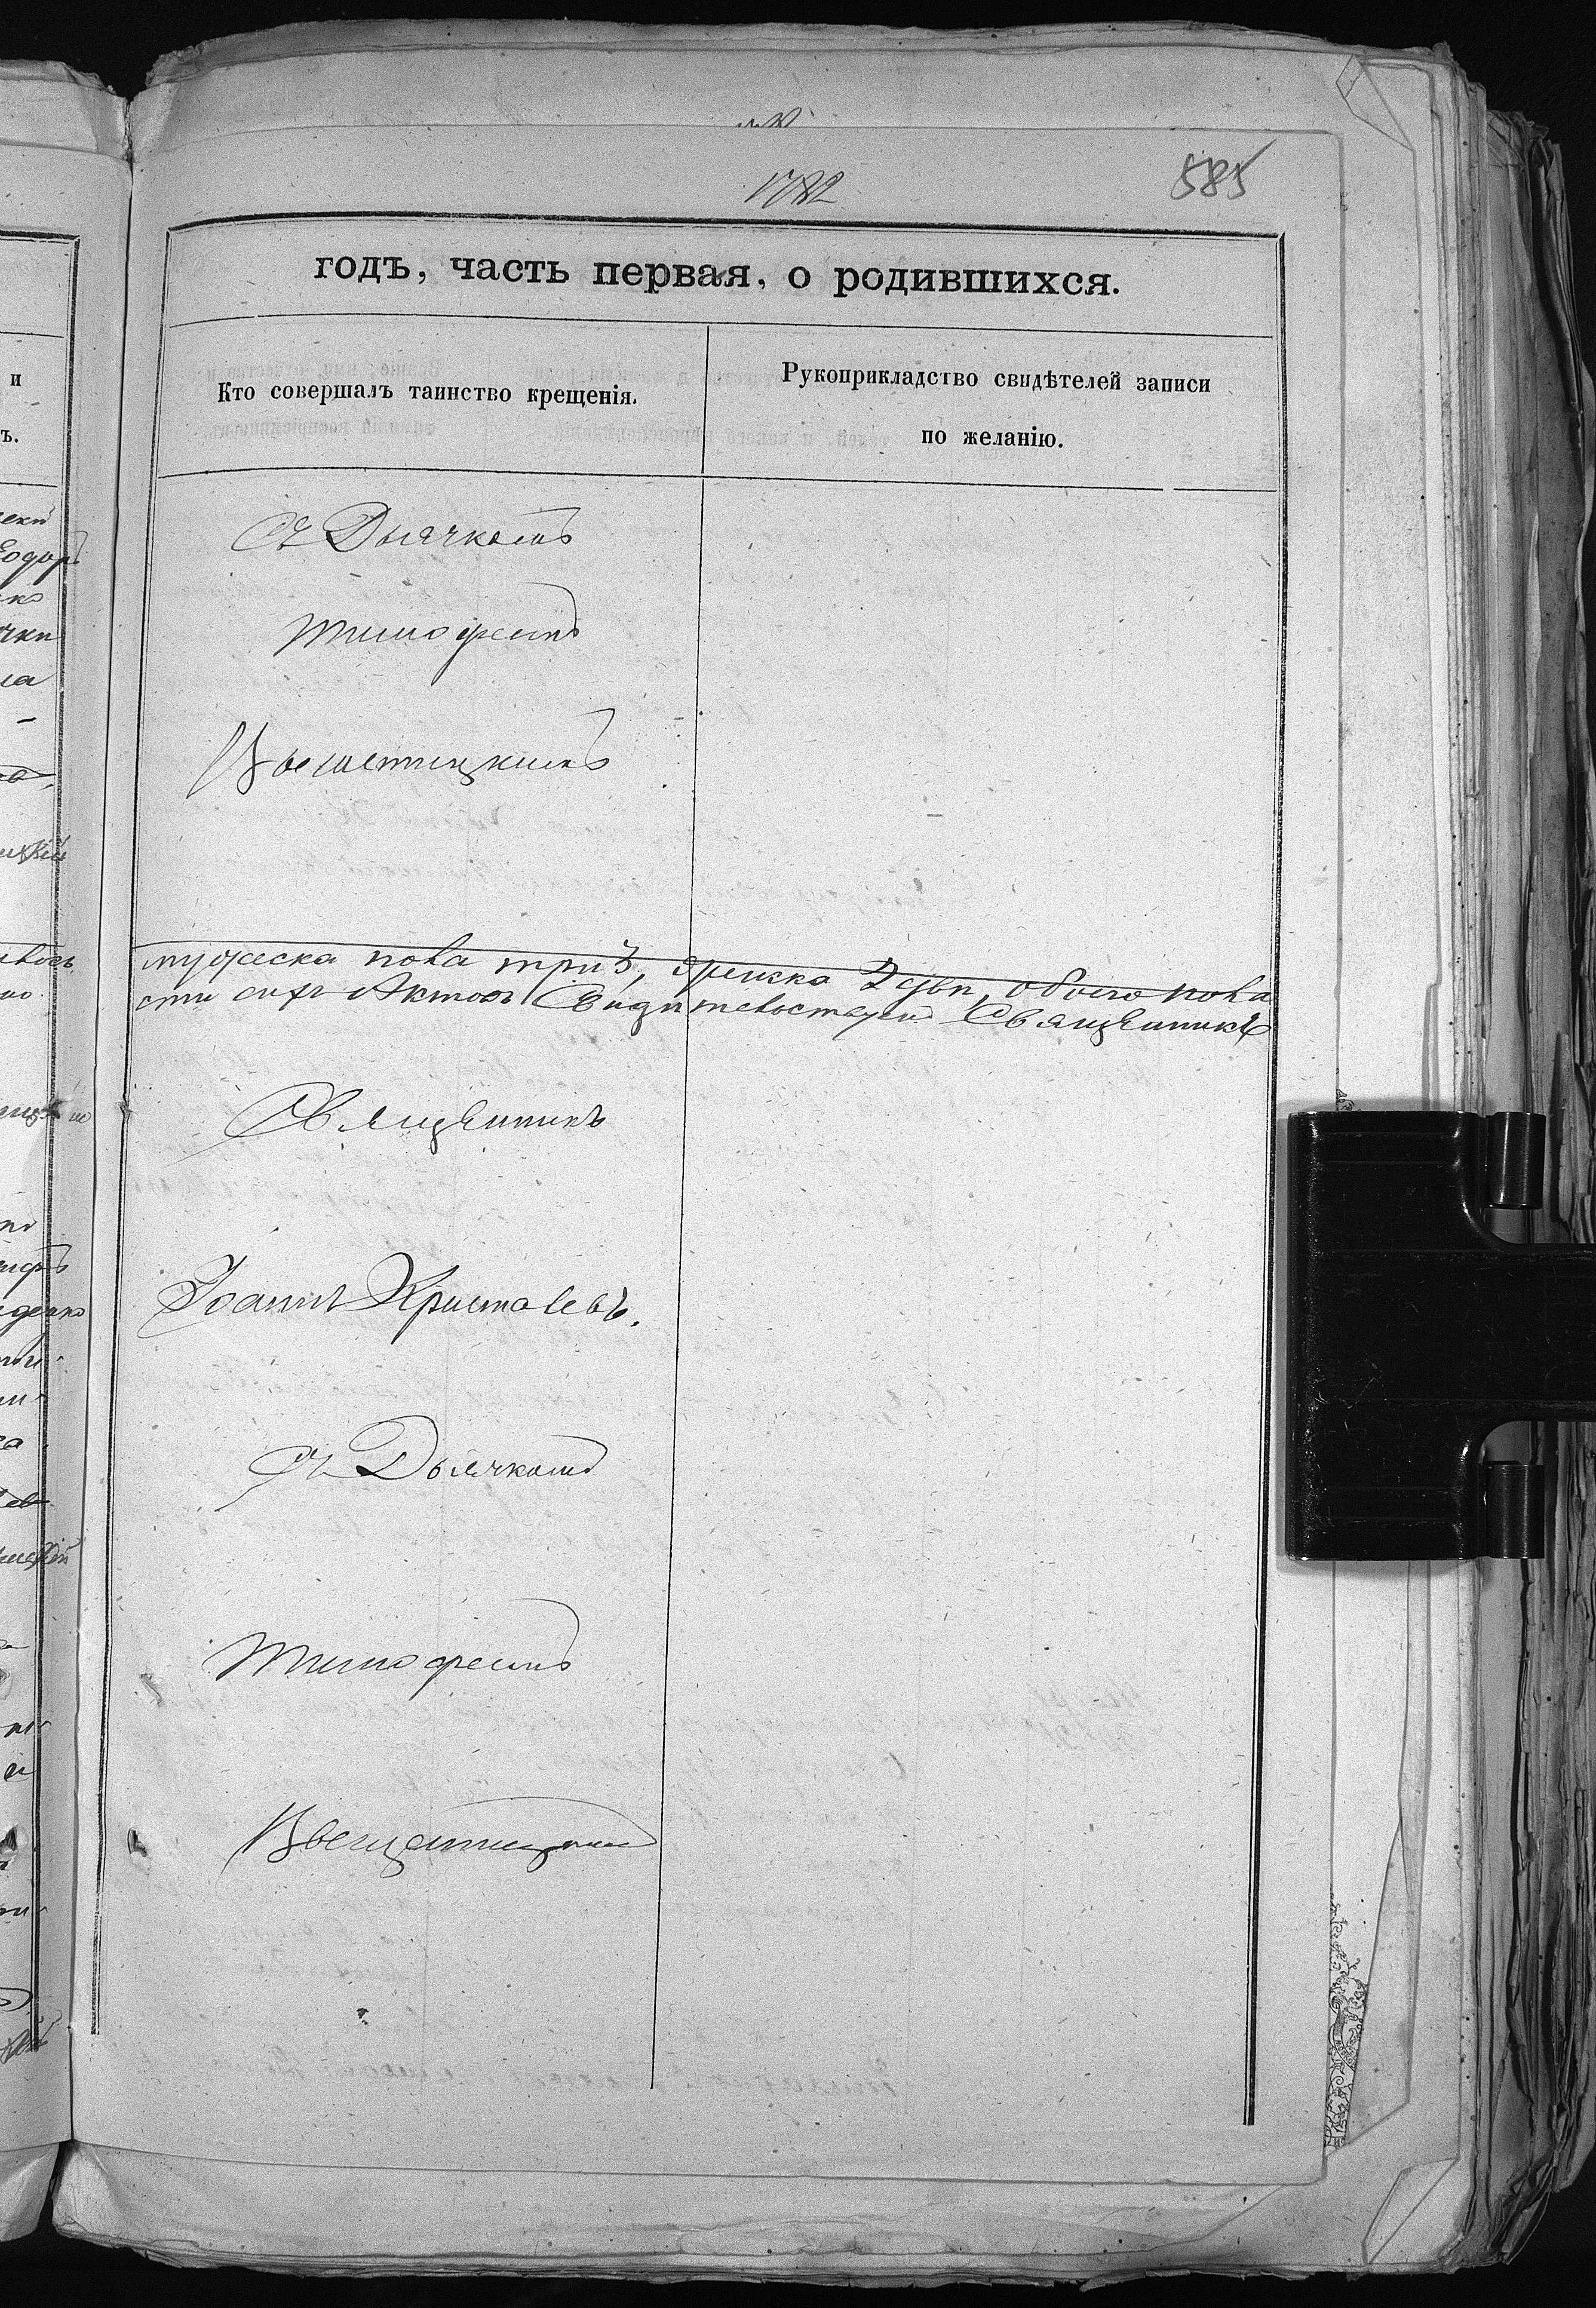 1782
585
годъ, часть первая, о родившихся.
Кто совершалъ таинство крещенія.
Рукоприкладство свидѣтелей записи
по желанію.
Съ Дьячкомъ
Тимофеемъ
мужеска пола три, женска 2 дви, обоего пола
сти сихъ Актовъ Свидителствую Священникъ
Священникъ
Іоаннъ Кристалевъ.
Съ Дьячкомъ
Тимофеемъ